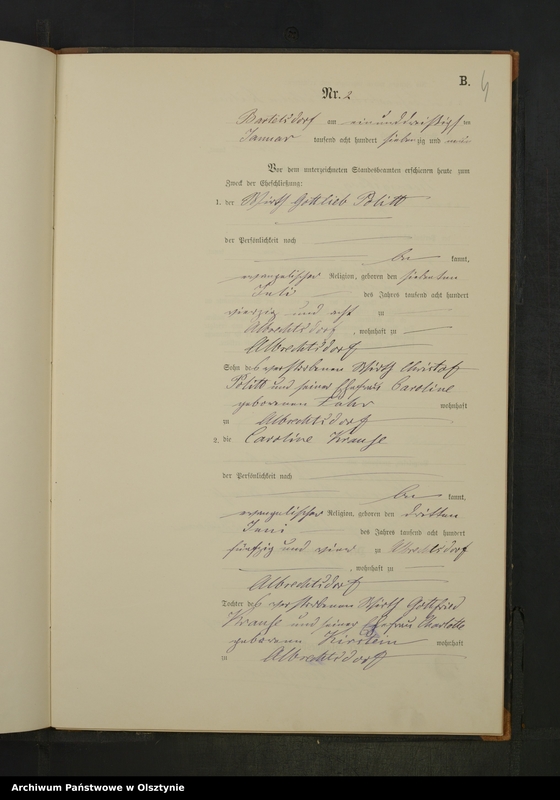 B.
4
Nr. 2
am einunddreißigsten
Januar tausend acht hundert siebenzig und neun
Vor dem unterzeichneten Standesbeamten erschienen heute zum
Zweck der Eheschließung:
1. der Wirth Gottlieb Politt
der Persönlichkeit nach
be kannt,
evangelischer Religion, geboren den siebenten
Juli des Jahres tausend acht hundert
vierzig und acht zu
Albrechtsdorf, wohnhaft zu
Albrechtsdorf
Sohn des verstorbenen Wirth Christof
Politt und seiner Ehefrau Caroline
geborenen wohnhaft
zu Albrechtsdorf
2. die Caroline Krause
der Persönlichkeit nach
be kannt,
evangelischer Religion, geboren den dritten
Juni des Jahres tausend acht hundert
fünfzig und vier zu Albrechtsdorf
, wohnhaft zu
Albrechtsdorf
Tochter des verstorbenen Wirth Gottfried
Krause und seiner Ehefrau Charlotte
geborenen Kirstein wohnhaft
zu Albrechtsdorf
Archiwum Państwowe w Olsztynie